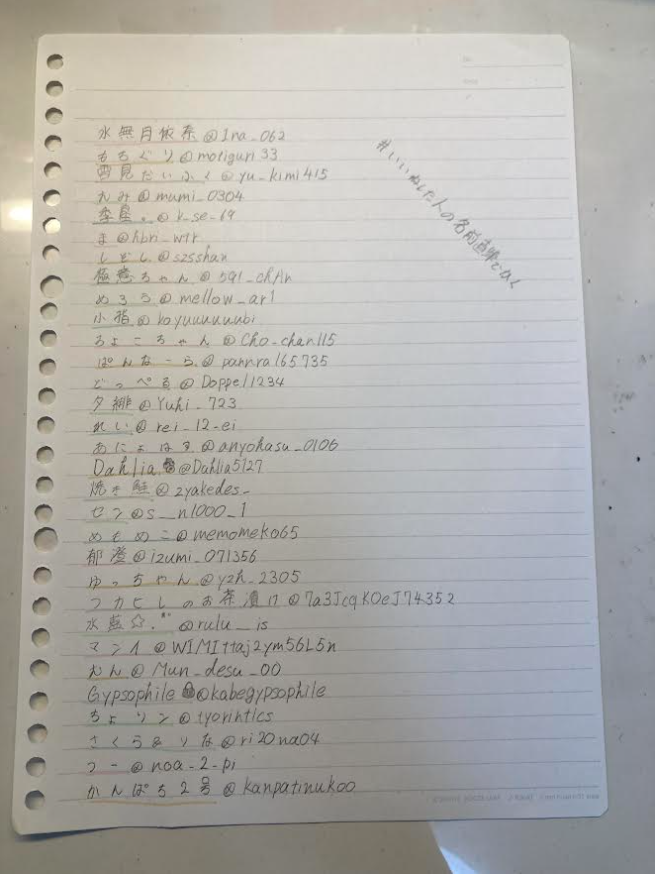 水無月依系 @Ina_062
もちぐり @motiguri33
雪見だいふく @yu_kimi415
えみ @mumi_0304
季星。@k_se_69
ま @hbn_w1r
しどし @szsshan
ちゃん
めろう @mellow_ar1
小指 @koyuuuuuubi
ちょこちゃん @Cho_chan115
ぱんなーら @pannra165735
どっぺる @Doppel1234
夕緋 @Yuhi_723
れい @rei_12_ei
あにょはす @anyohasu_0106
Dahlia @Dahlia5127
焼き鮭 @zyakedes_
セン @s__n1000_1
めもめこ @memomeko65
郁澄 @izumi_071356
ゆっちゃん @yzh_2305
フカヒレのお茶漬け @7a3JcqKOeJ74352
水点☆ @rulu__is
マンイ @WIMI11aj2ym56L5n
むん @Mun_desu_00
Gypsophile @kabegypsophile
ちょリン @tyorintics
さくら&りな @ri20na04
つー @noa_2_pi
かんぱち2号 @kanpatinukoo
#いいねした人の名前直筆でかく